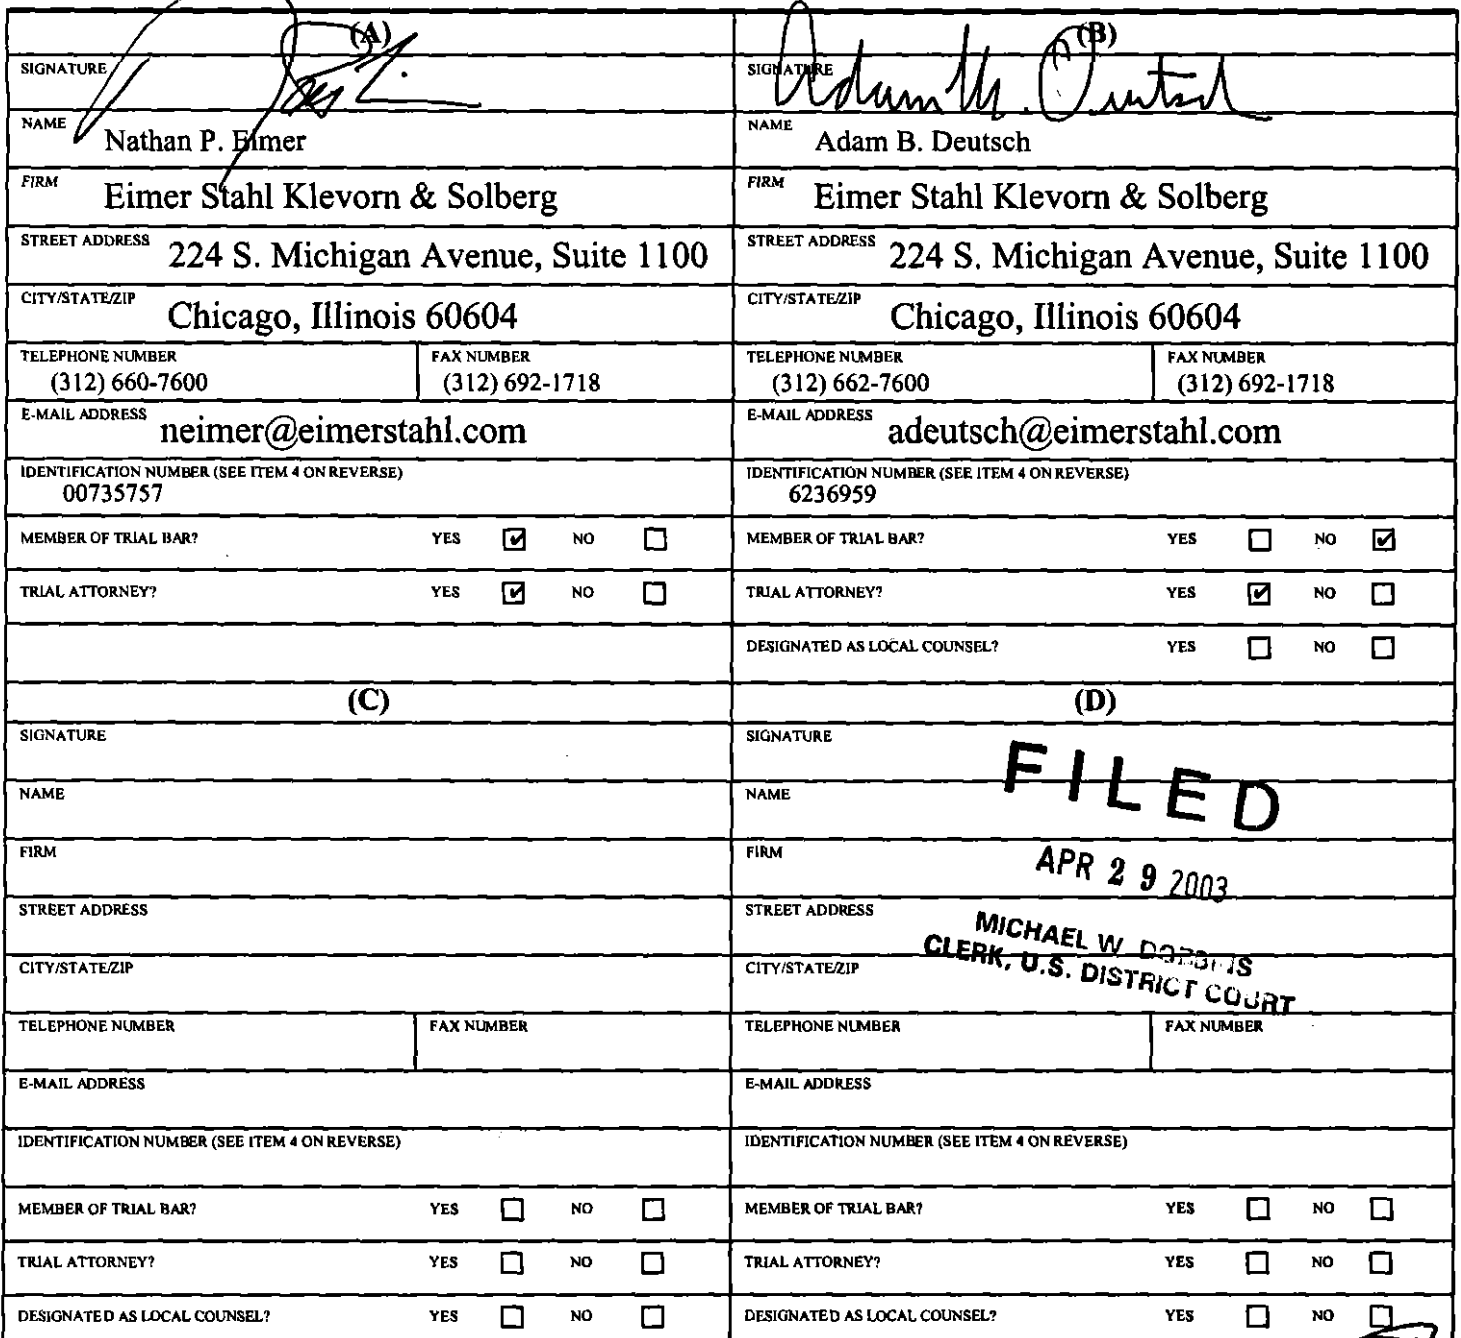 (A)
SIGNATURE
NAME Nathan P. Eimer
FIRM Eimer Stahl Klevorn & Solberg
STREET ADDRESS 224 S. Michigan Avenue, Suite 1100
CITY/STATE/ZIP Chicago, Illinois 60604
TELEPHONE NUMBER FAX NUMBER
(312) 660-7600 (312) 692-1718
E-MAIL ADDRESS neimer@eimerstahl.com
IDENTIFICATION NUMBER (SEE ITEM 4 ON REVERSE)
00735757
MEMBER OF TRIAL BAR? YES ☑ NO ☐
TRIAL ATTORNEY? YES ☑ NO ☐
(B)
SIGNATURE Adam Deutsch
NAME Adam B. Deutsch
FIRM Eimer Stahl Klevorn & Solberg
STREET ADDRESS 224 S. Michigan Avenue, Suite 1100
CITY/STATE/ZIP Chicago, Illinois 60604
TELEPHONE NUMBER FAX NUMBER
(312) 662-7600 (312) 692-1718
E-MAIL ADDRESS adeutsch@eimerstahl.com
IDENTIFICATION NUMBER (SEE ITEM 4 ON REVERSE)
6236959
MEMBER OF TRIAL BAR? YES ☐ NO ☑
TRIAL ATTORNEY? YES ☑ NO ☐
DESIGNATED AS LOCAL COUNSEL? YES ☐ NO ☐
(C)
SIGNATURE
NAME
FIRM
STREET ADDRESS
CITY/STATE/ZIP
TELEPHONE NUMBER FAX NUMBER
E-MAIL ADDRESS
IDENTIFICATION NUMBER (SEE ITEM 4 ON REVERSE)
MEMBER OF TRIAL BAR? YES ☐ NO ☐
TRIAL ATTORNEY? YES ☐ NO ☐
DESIGNATED AS LOCAL COUNSEL? YES ☐ NO ☐
(D)
SIGNATURE
NAME
FIRM
STREET ADDRESS
CITY/STATE/ZIP
TELEPHONE NUMBER FAX NUMBER
E-MAIL ADDRESS
IDENTIFICATION NUMBER (SEE ITEM 4 ON REVERSE)
MEMBER OF TRIAL BAR? YES ☐ NO ☐
TRIAL ATTORNEY? YES ☐ NO ☐
DESIGNATED AS LOCAL COUNSEL? YES ☐ NO ☐
FILED
APR 29 2003
MICHAEL W. DOBBINS
CLERK, U.S. DISTRICT COURT